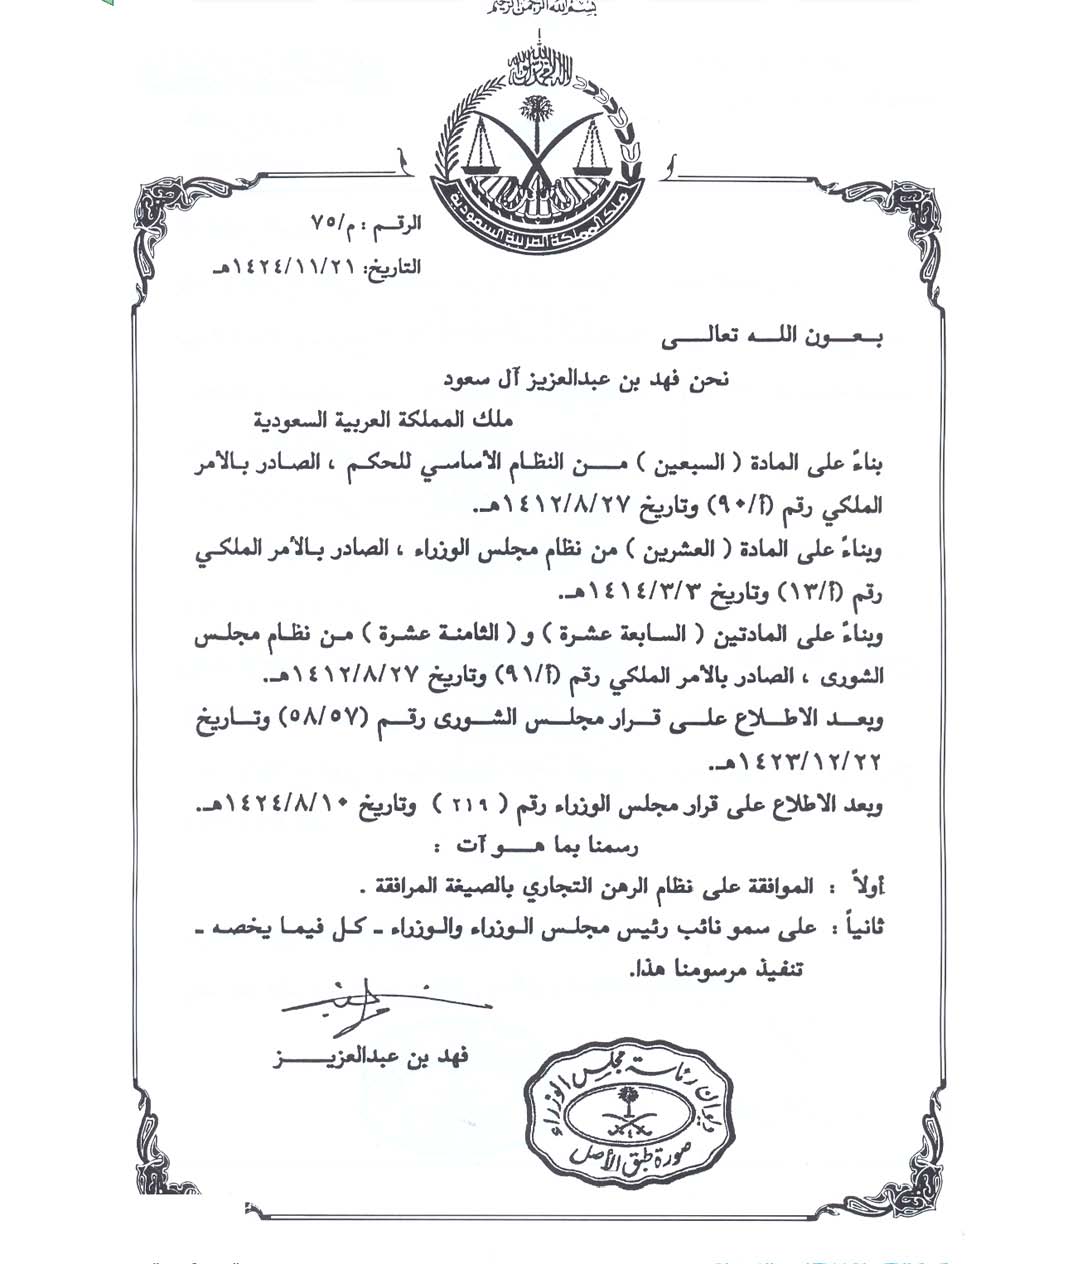 بسم الله الرحمن الرحيم
ملك المملكة العربية السعودية
الرقـم : م/٧٥
التاريخ: ١٤٢٤/١١/٢١هـ
بـعـــون اللـــه تعالـــى
نحن فهد بن عبدالعزيز آل سعود
ملك المملكة العربية السعودية
بناءً على المادة ( السبعين ) مــن النظـام الأساسـي للحكـم ، الصـادر بـالأمر
الملكي رقم (أ/٩٠) وتاريخ ١٤١٢/٨/٢٧هـ.
وبناءً على المادة ( العشرين ) من نظام مجلس الوزراء ، الصادر بـالأمر الملكـي
رقم (أ/١٣) وتاريخ ١٤١٤/٣/٣هـ.
وبناءً على المادتين ( السـابعة عشـرة ) و ( الثامنـة عشـرة ) مـن نظـام مجلـس
الشورى ، الصادر بالأمر الملكي رقم (أ/٩١) وتاريخ ١٤١٢/٨/٢٧هـ.
وبعــد الاطــلاع علــى قــرار مجلــس الشــورى رقــم (٥٨/٥٧) وتــاريخ
١٤٢٣/١٢/٢٢هـ.
وبعد الاطلاع على قرار مجلس الوزراء رقم ( ٢١٩ ) وتاريخ ١٤٢٤/٨/١٠هـ.
رسمنا بما هـــو آت :
أولاً : الموافقة على نظام الرهن التجاري بالصيغة المرافقة .
ثانياً : على سمو نائب رئيس مجلـس الـوزراء والـوزراء ـ كـل فيمـا يخصـه ـ
تنفيذ مرسومنا هذا.
فهد بن عبدالعزيــــز
ديوان رئاسة مجلس الوزراء
صورة طبق الأصل